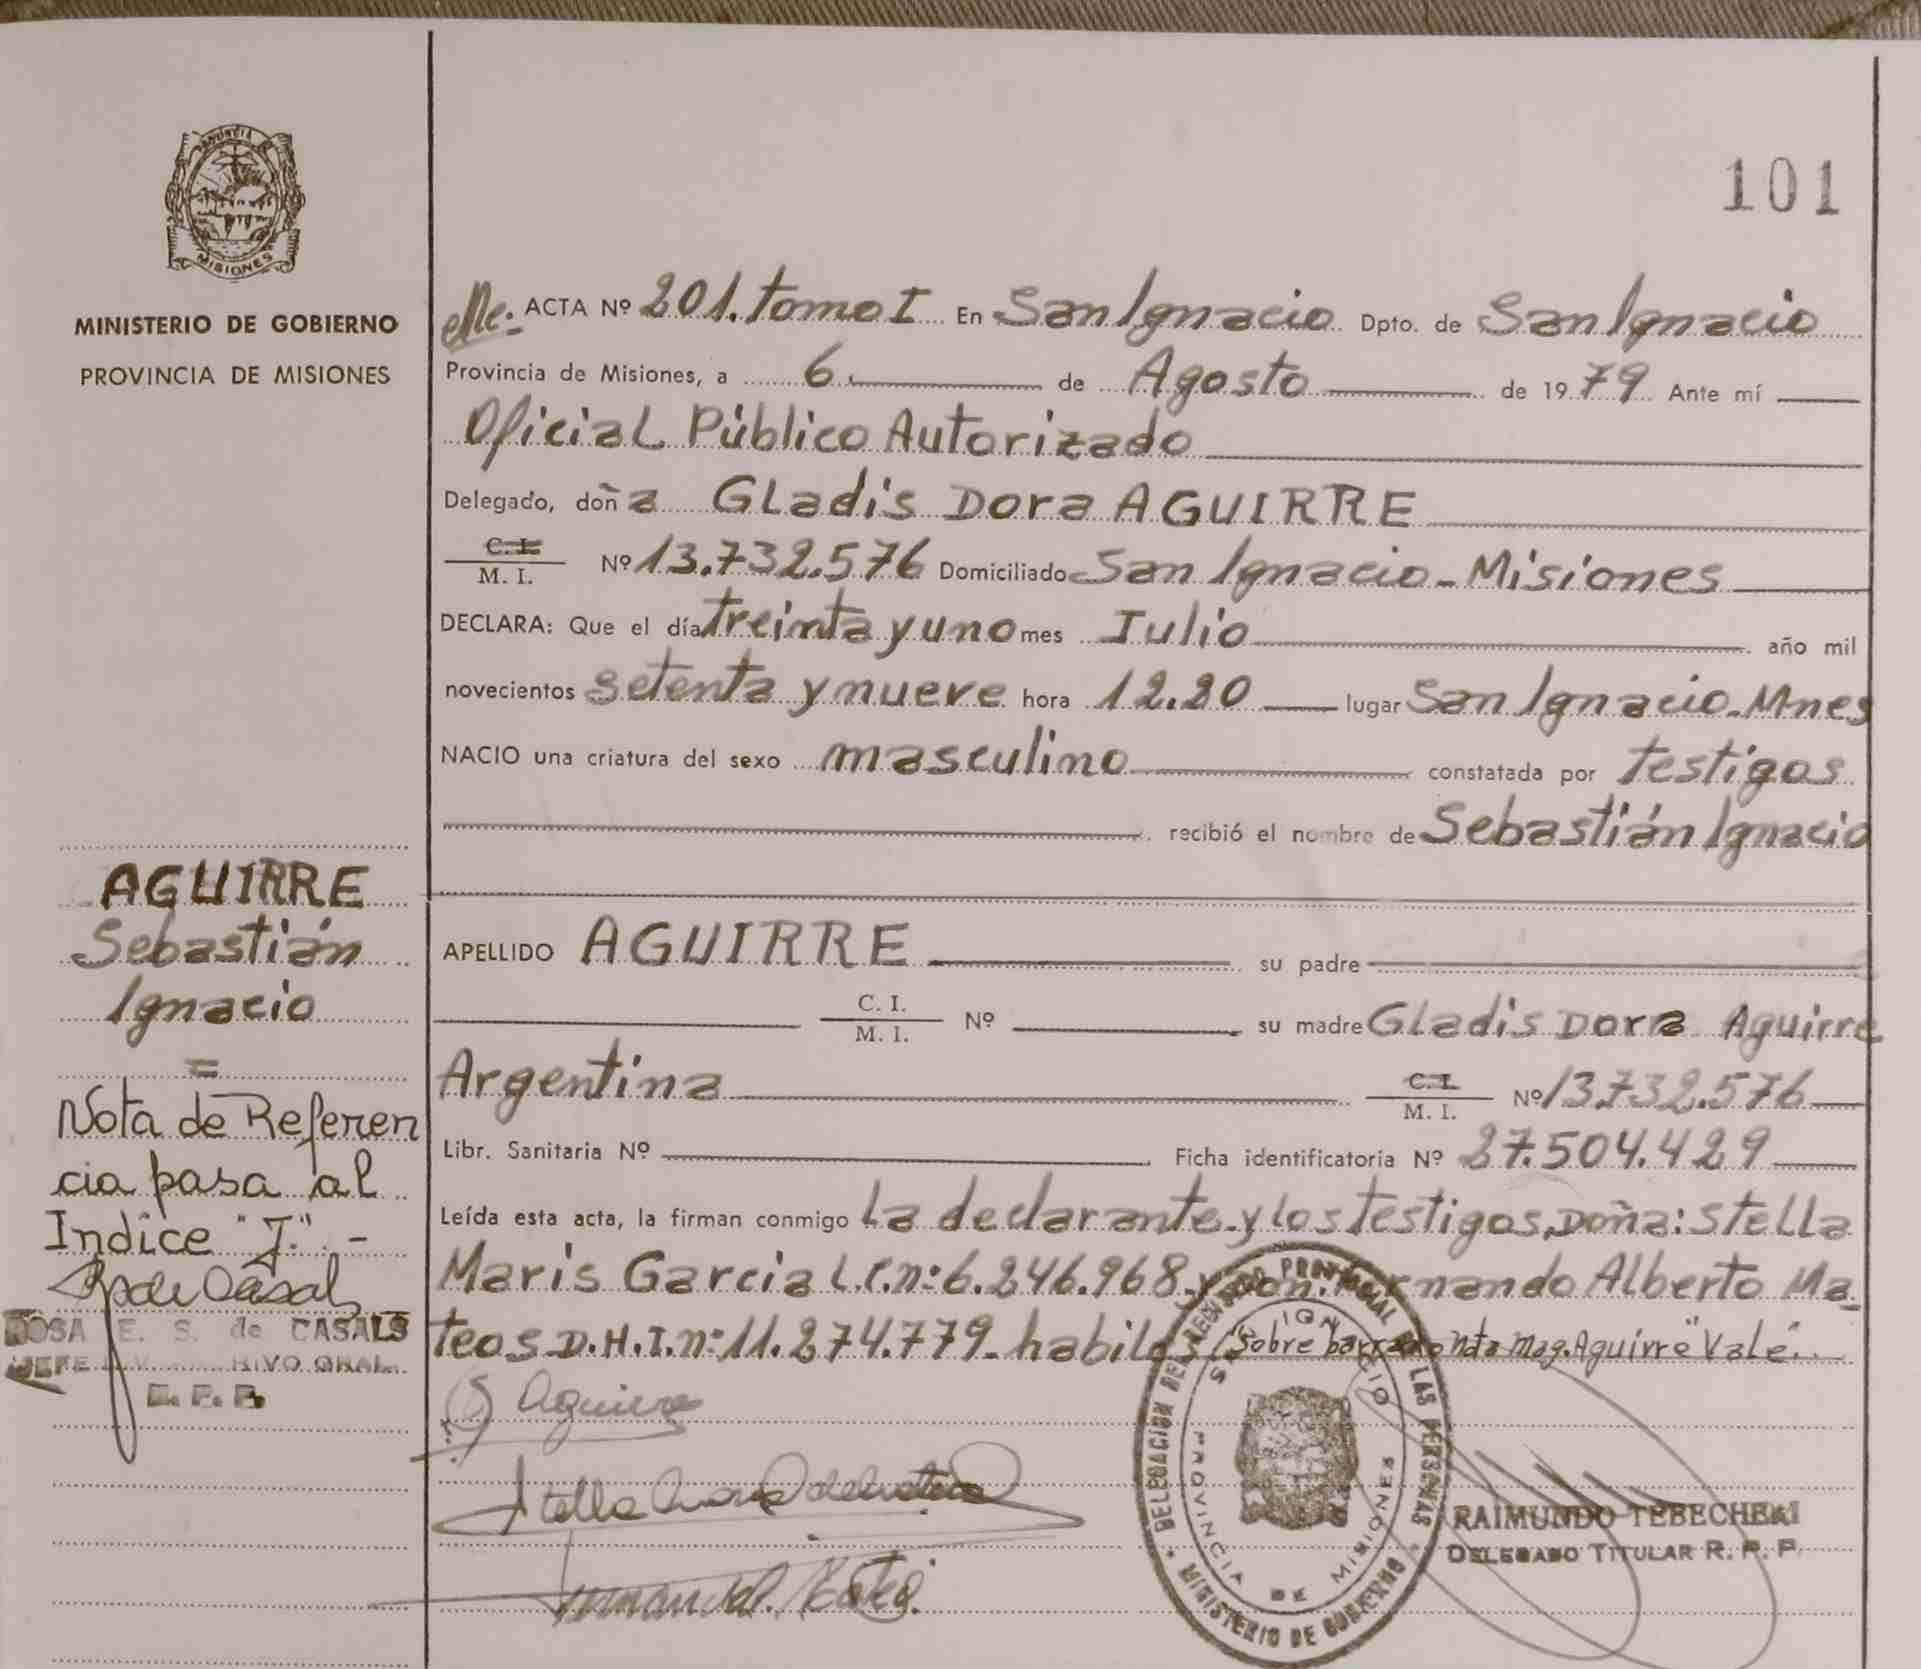 ANUNCIA
MISIONES
MINISTERIO DE GOBIERNO
PROVINCIA DE MISIONES
101
ACTA Nº 201. Tomo I En San Ignacio Dpto. de San Ignacio
Provincia de Misiones, a 6 de Agosto de 1979 Ante mí
Oficial Público Autorizado
Delegado, doña Gladis Dora AGUIRRE
C. I.
M. I. Nº 13.732.576 Domiciliado San Ignacio - Misiones
DECLARA: Que el día treinta y uno mes Julio año mil
novecientos setenta y nueve hora 12.20 lugar San Ignacio - Mnes
NACIO una criatura del sexo masculino constatada por testigos
recibió el nombre de Sebastián Ignacio
APELLIDO AGUIRRE su padre
C. I.
M. I. Nº su madre Gladis Dora Aguirre
Argentina C. I.
M. I. Nº 13.732.576
Libr. Sanitaria Nº Ficha identificatoria Nº 27.504.429
Leída esta acta, la firman conmigo la declarante y los testigos, Doña: Stella
Maris Garcia L.C. nº: 6.246.968 y don: Fernando Alberto Ma-
teos D.N.I. nº: 11.274.779 - habiles "Sobre barrado nta Mag. Aguirre" Vale.
AGUIRRE
Sebastián
Ignacio
=
Nota de Referen
cia pasa al
Indice "J". -
ROSA E. S. de CASALS
JEFE ARCHIVO GRAL.
R. P. P.
Aguirre
DELEGACION DEL REGISTRO PROVINCIAL DE LAS PERSONAS
SAN IGNACIO
PROVINCIA DE MISIONES
MINISTERIO DE GOBIERNO
RAIMUNDO TEBECHERI
DELEGADO TITULAR R. P. P.